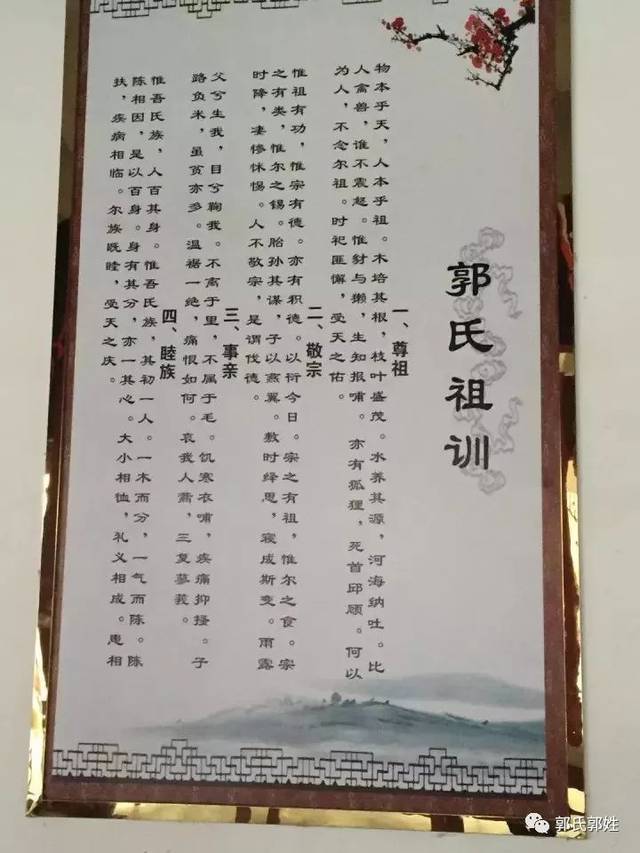 郭氏祖训
一、尊祖
物本乎天，人本乎祖。木培其根，枝叶盛茂。水养其源，河海纳吐。比
人禽兽，谁不震起。惟豺与獭，生知报哺。亦有狐狸，死首邱顾。何以
为人，不念尔祖。时祀匪懈，受天之佑。
二、敬宗
惟祖有功，惟宗有德。亦有积德。以衍今日。宗之有祖，惟尔之食。宗
之有类，惟尔之锡。胎孙其谋，子以燕翼。敷时绎思，寝成斯变。雨露
时降，凄惨怵惕。人不敬宗，是谓伐德。
三、事亲
父兮生我，目兮鞠我。不离于里，不属于毛。饥寒衣哺，疾痛抑搔。子
路负米，虽贫亦多。温裾一绝，痛恨如何。哀我人斋，三复蓼莪。
四、睦族
惟吾氏族，人百其身。惟吾氏族，其初一人。一木而分，一气而陈。陈
陈相因，是以百身。身有其分，亦一其心。大小相恤，礼义相成。患相
扶，疾病相临。尔族既睦，受天之庆。
郭氏郭姓